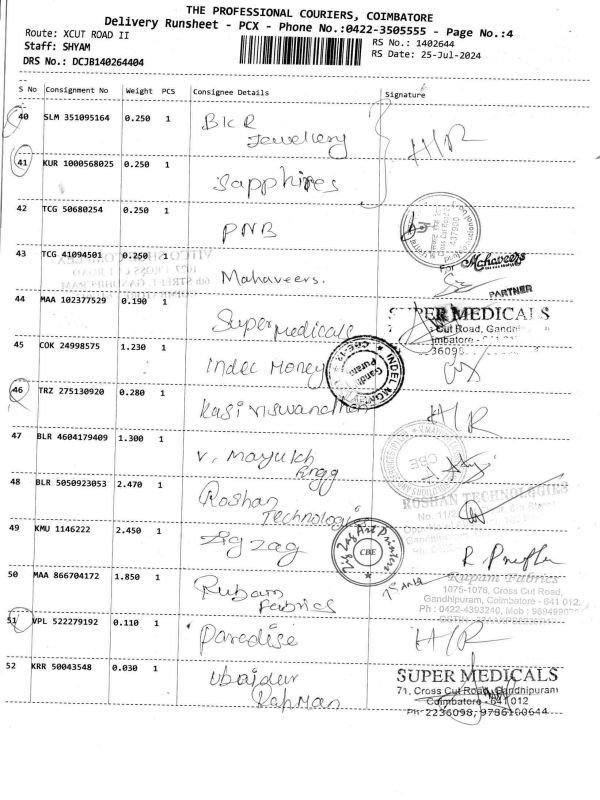 THE PROFESSIONAL COURIERS, COIMBATORE
Delivery Runsheet - PCX - Phone No.:0422-3505555 - Page No.:4
Route: XCUT ROAD II
RS No.: 1402644
Staff: SHYAM
RS Date: 25-Jul-2024
DRS No.: DCJB140264404
S No Consignment No Weight PCS Consignee Details Signature
40 SLM 351095164 0.250 1 BKR Jewellery H/R
41 KUR 1000568025 0.250 1 Sapphires
42 TCG 50680254 0.250 1 PNB
43 TCG 41094501 0.250 1 Mahaveers.
For Mahaveers
PARTNER
44 MAA 102377529 0.190 1 Super Medicals
SUPER MEDICALS
Cut Road,
36098,
45 COK 24998575 1.230 1 Indel Money
INDEL MONEY
46 TRZ 275130920 0.280 1 Kasi Viswanathan H/R
47 BLR 4604179409 1.300 1 V. Mayukh Engg
CBE
48 BLR 5050923053 2.470 1 Roshan Technologies
ROSHAN TECHNOLOGIES
49 KMU 1146222 2.450 1 Zig Zag
Zig Zag Art Printers
CBE
50 MAA 866704172 1.850 1 Rubam Fabrics
Rupam Fabrics
1075-1076, Cross Cut Road,
Gandhipuram, Coimbatore - 641 012.
Ph : 0422-4393240, Mob :
51 VPL 522279192 0.110 1 Paradise H/R
52 KRR 50043548 0.030 1 Ubaidur Rahman
SUPER MEDICALS
71, Cross Cut Road, Gandhipuram
Coimbatore - 641 012
PH: 2236098, 9786100644